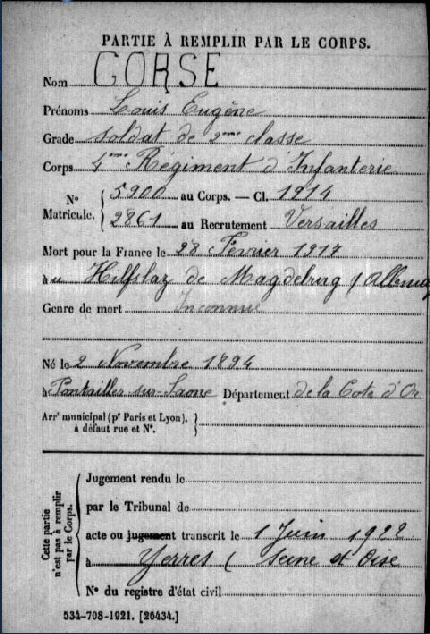 PARTIE À REMPLIR PAR LE CORPS.
Nom GORSE
Prénoms Louis Eugène
Grade soldat de 2eme classe
Corps 4me Régiment d'Infanterie
N° Matricule. { 5900 au Corps. — Cl. 1914
2861 au Recrutement Versailles
Mort pour la France le 28 Février 1917
à u Hilfslaz de Magdebrug (Allemag
Genre de mort Inconnu
Né le 2 Novembre 1894
à Pontailler-sur-Saone Département de la Cote d'Or
Arr' municipal (p' Paris et Lyon),
à défaut rue et N°.
Cette partie n'est pas à remplir par le Corps.
Jugement rendu le
par le Tribunal de
acte ou jugement transcrit le 1 Juin 1922
à Yerres (Seine et Oise
N° du registre d'état civil
534-708-1921. [26434.]